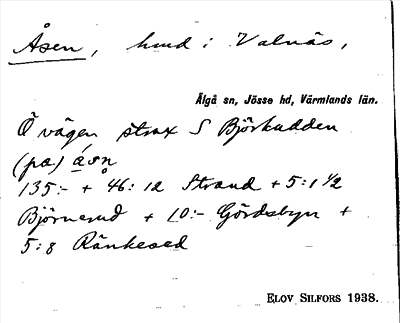 Åsen, hmd i Valnäs,
Älgå sn, Jösse hd, Värmlands län.
Ö vägen strax S Björkudden
(pa) åsn
135:- + 46:12 Strand + 5:1 1/2
Björnerud + 10:- Gördsbyn +
5:8 Ränkesed
ELOV SILFORS 1938.